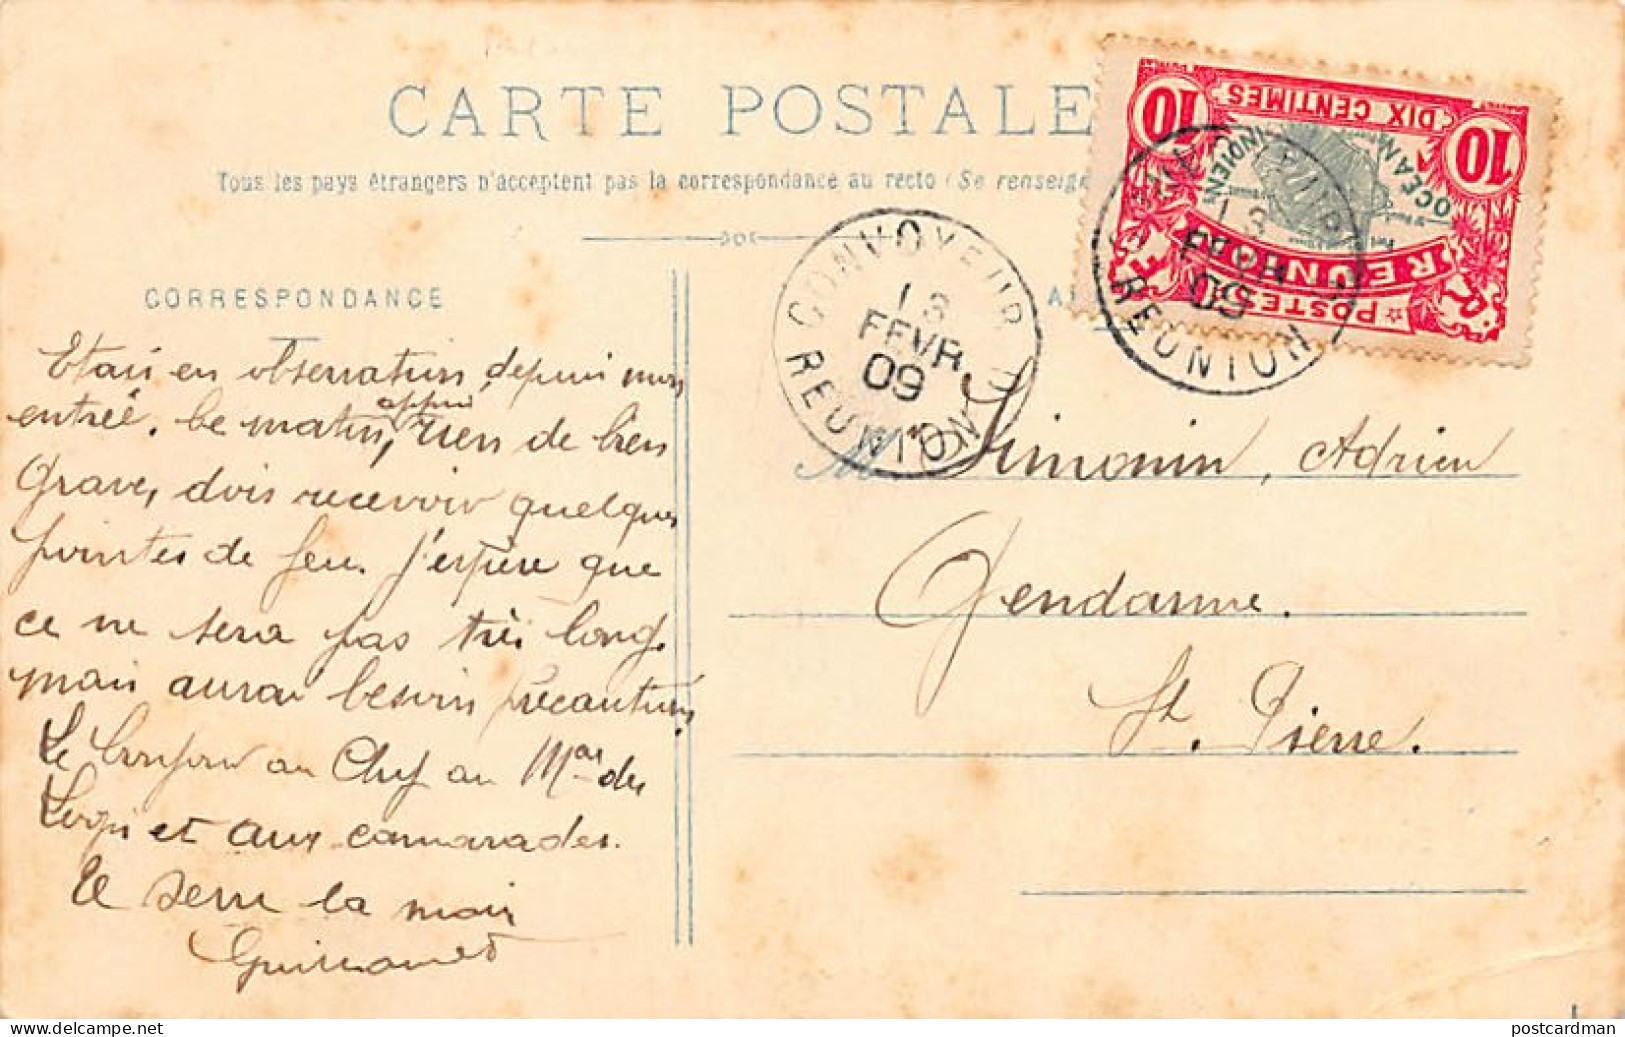 CARTE POSTALE
Tous les pays étrangers n'acceptent pas la correspondance au recto (Se renseigne
CORRESPONDANCE
Etais en observation depuis mon
entrée. Ce matin, appris rien de bien
Grave, dois recevoir quelques
pointes de feu. J'espère que
ce ne sera pas très long.
mais aurai besoin précautions.
Le bonjour au Chef au Mar des
Logis et aux camarades.
Te serre la main
10 DIX CENTIMES 10
OCÉAN INDIEN
RÉUNION
POSTES
RÉUNION
13
FEVR
09
CONVOYEUR
13
FEVR
09
REUNION
M Simonin, Adrien
Gendarme.
St. Pierre.
www.delcampe.net
postcardman